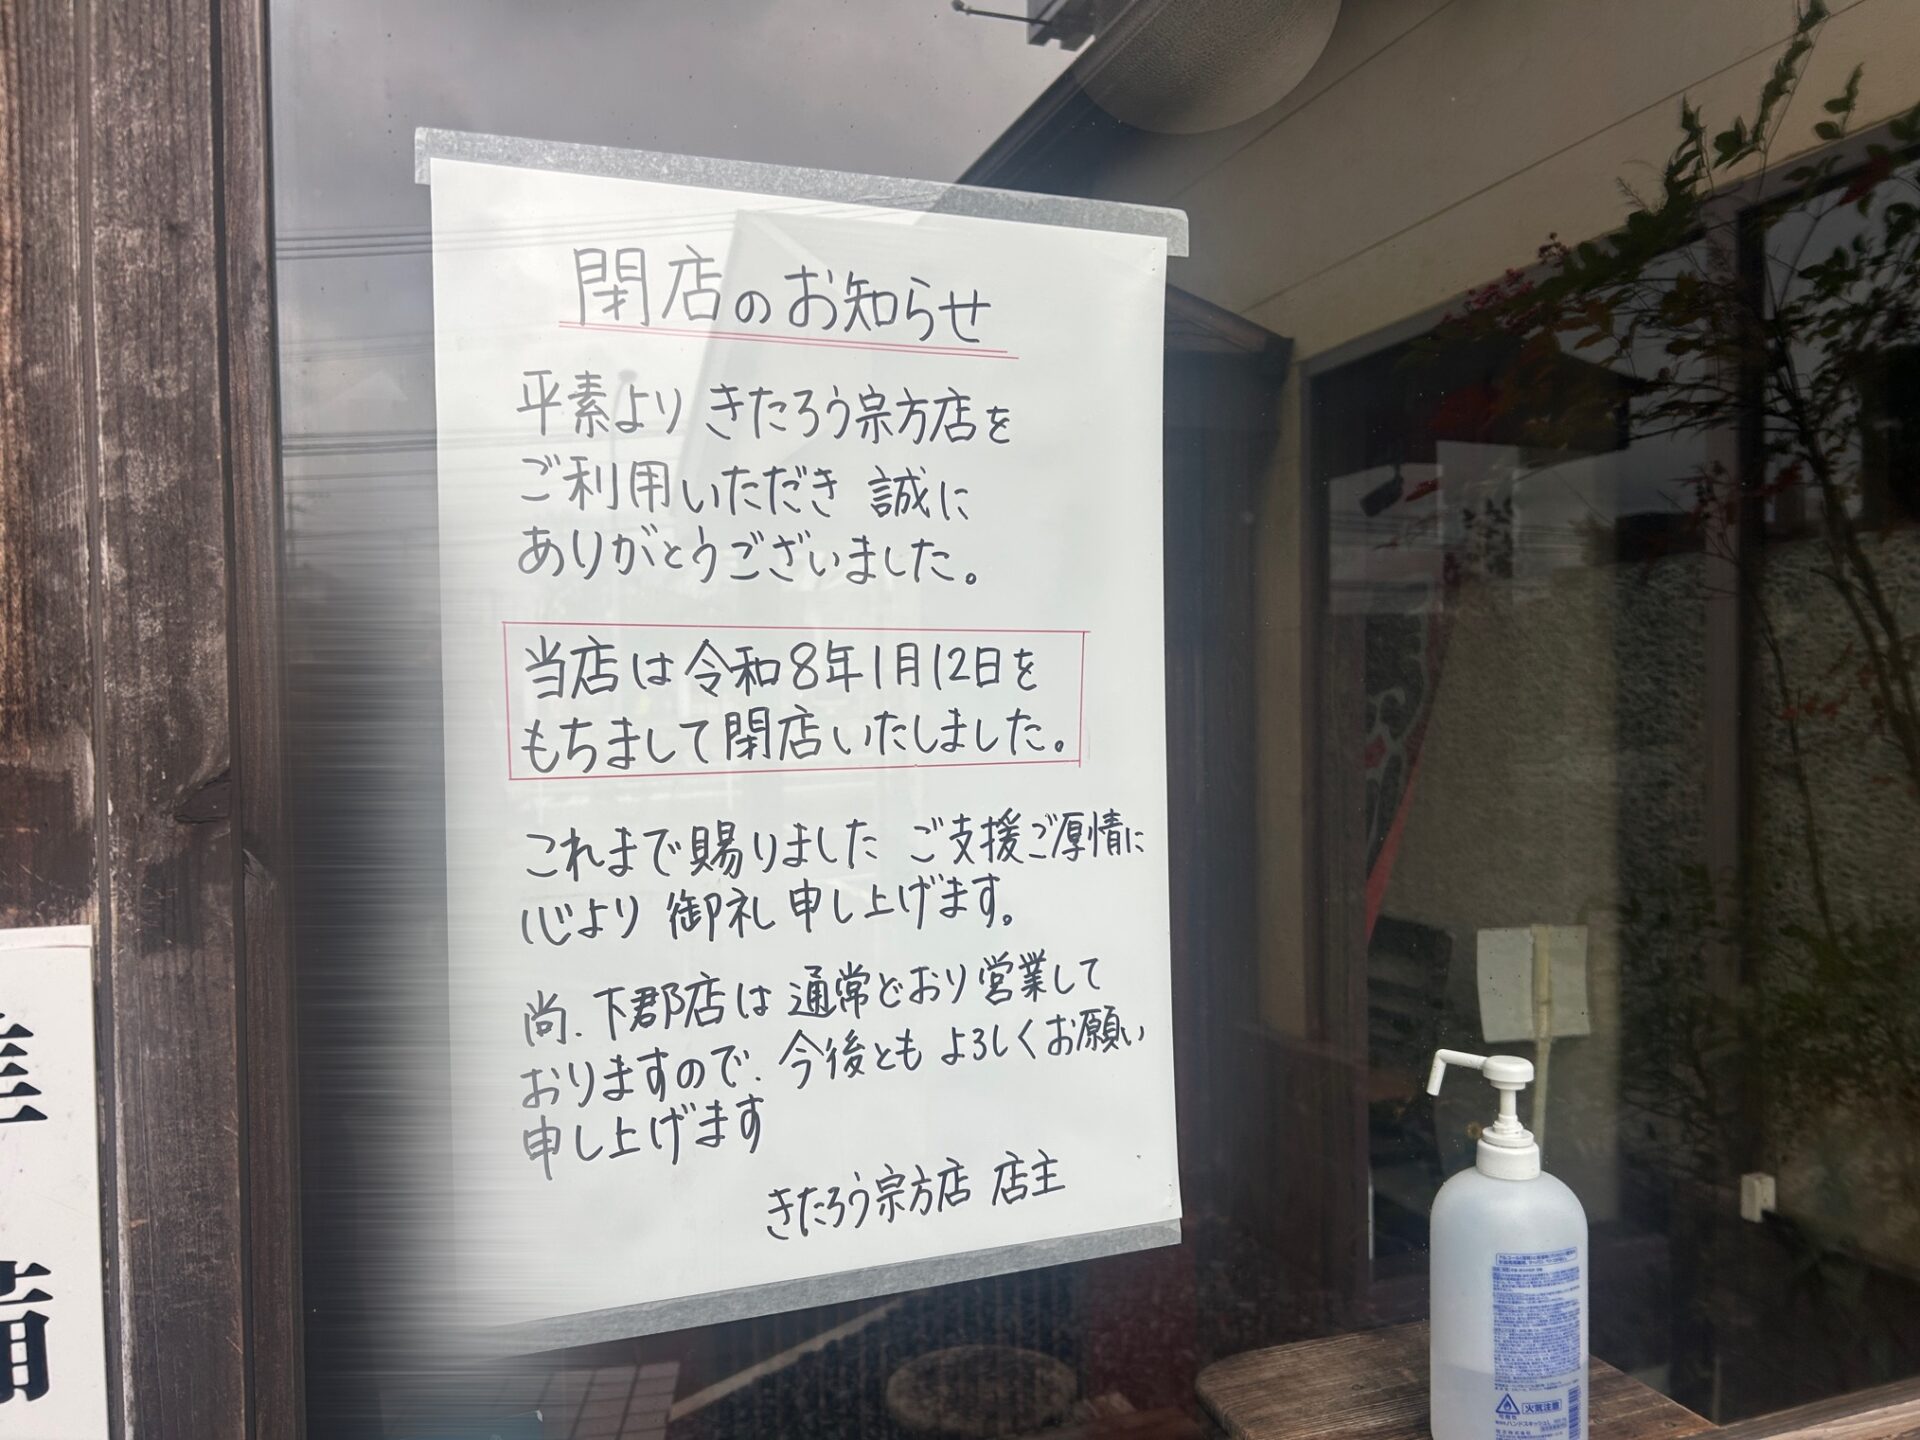 閉店のお知らせ
平素より きたろう宗方店を
ご利用いただき 誠に
ありがとうございました。
当店は令和8年1月12日を
もちまして閉店いたしました。
これまで賜りました ご支援ご厚情に
心より 御礼 申し上げます。
尚、下郡店は 通常どおり営業して
おりますので、今後とも よろしくお願い
申し上げます
きたろう宗方店 店主
火気注意